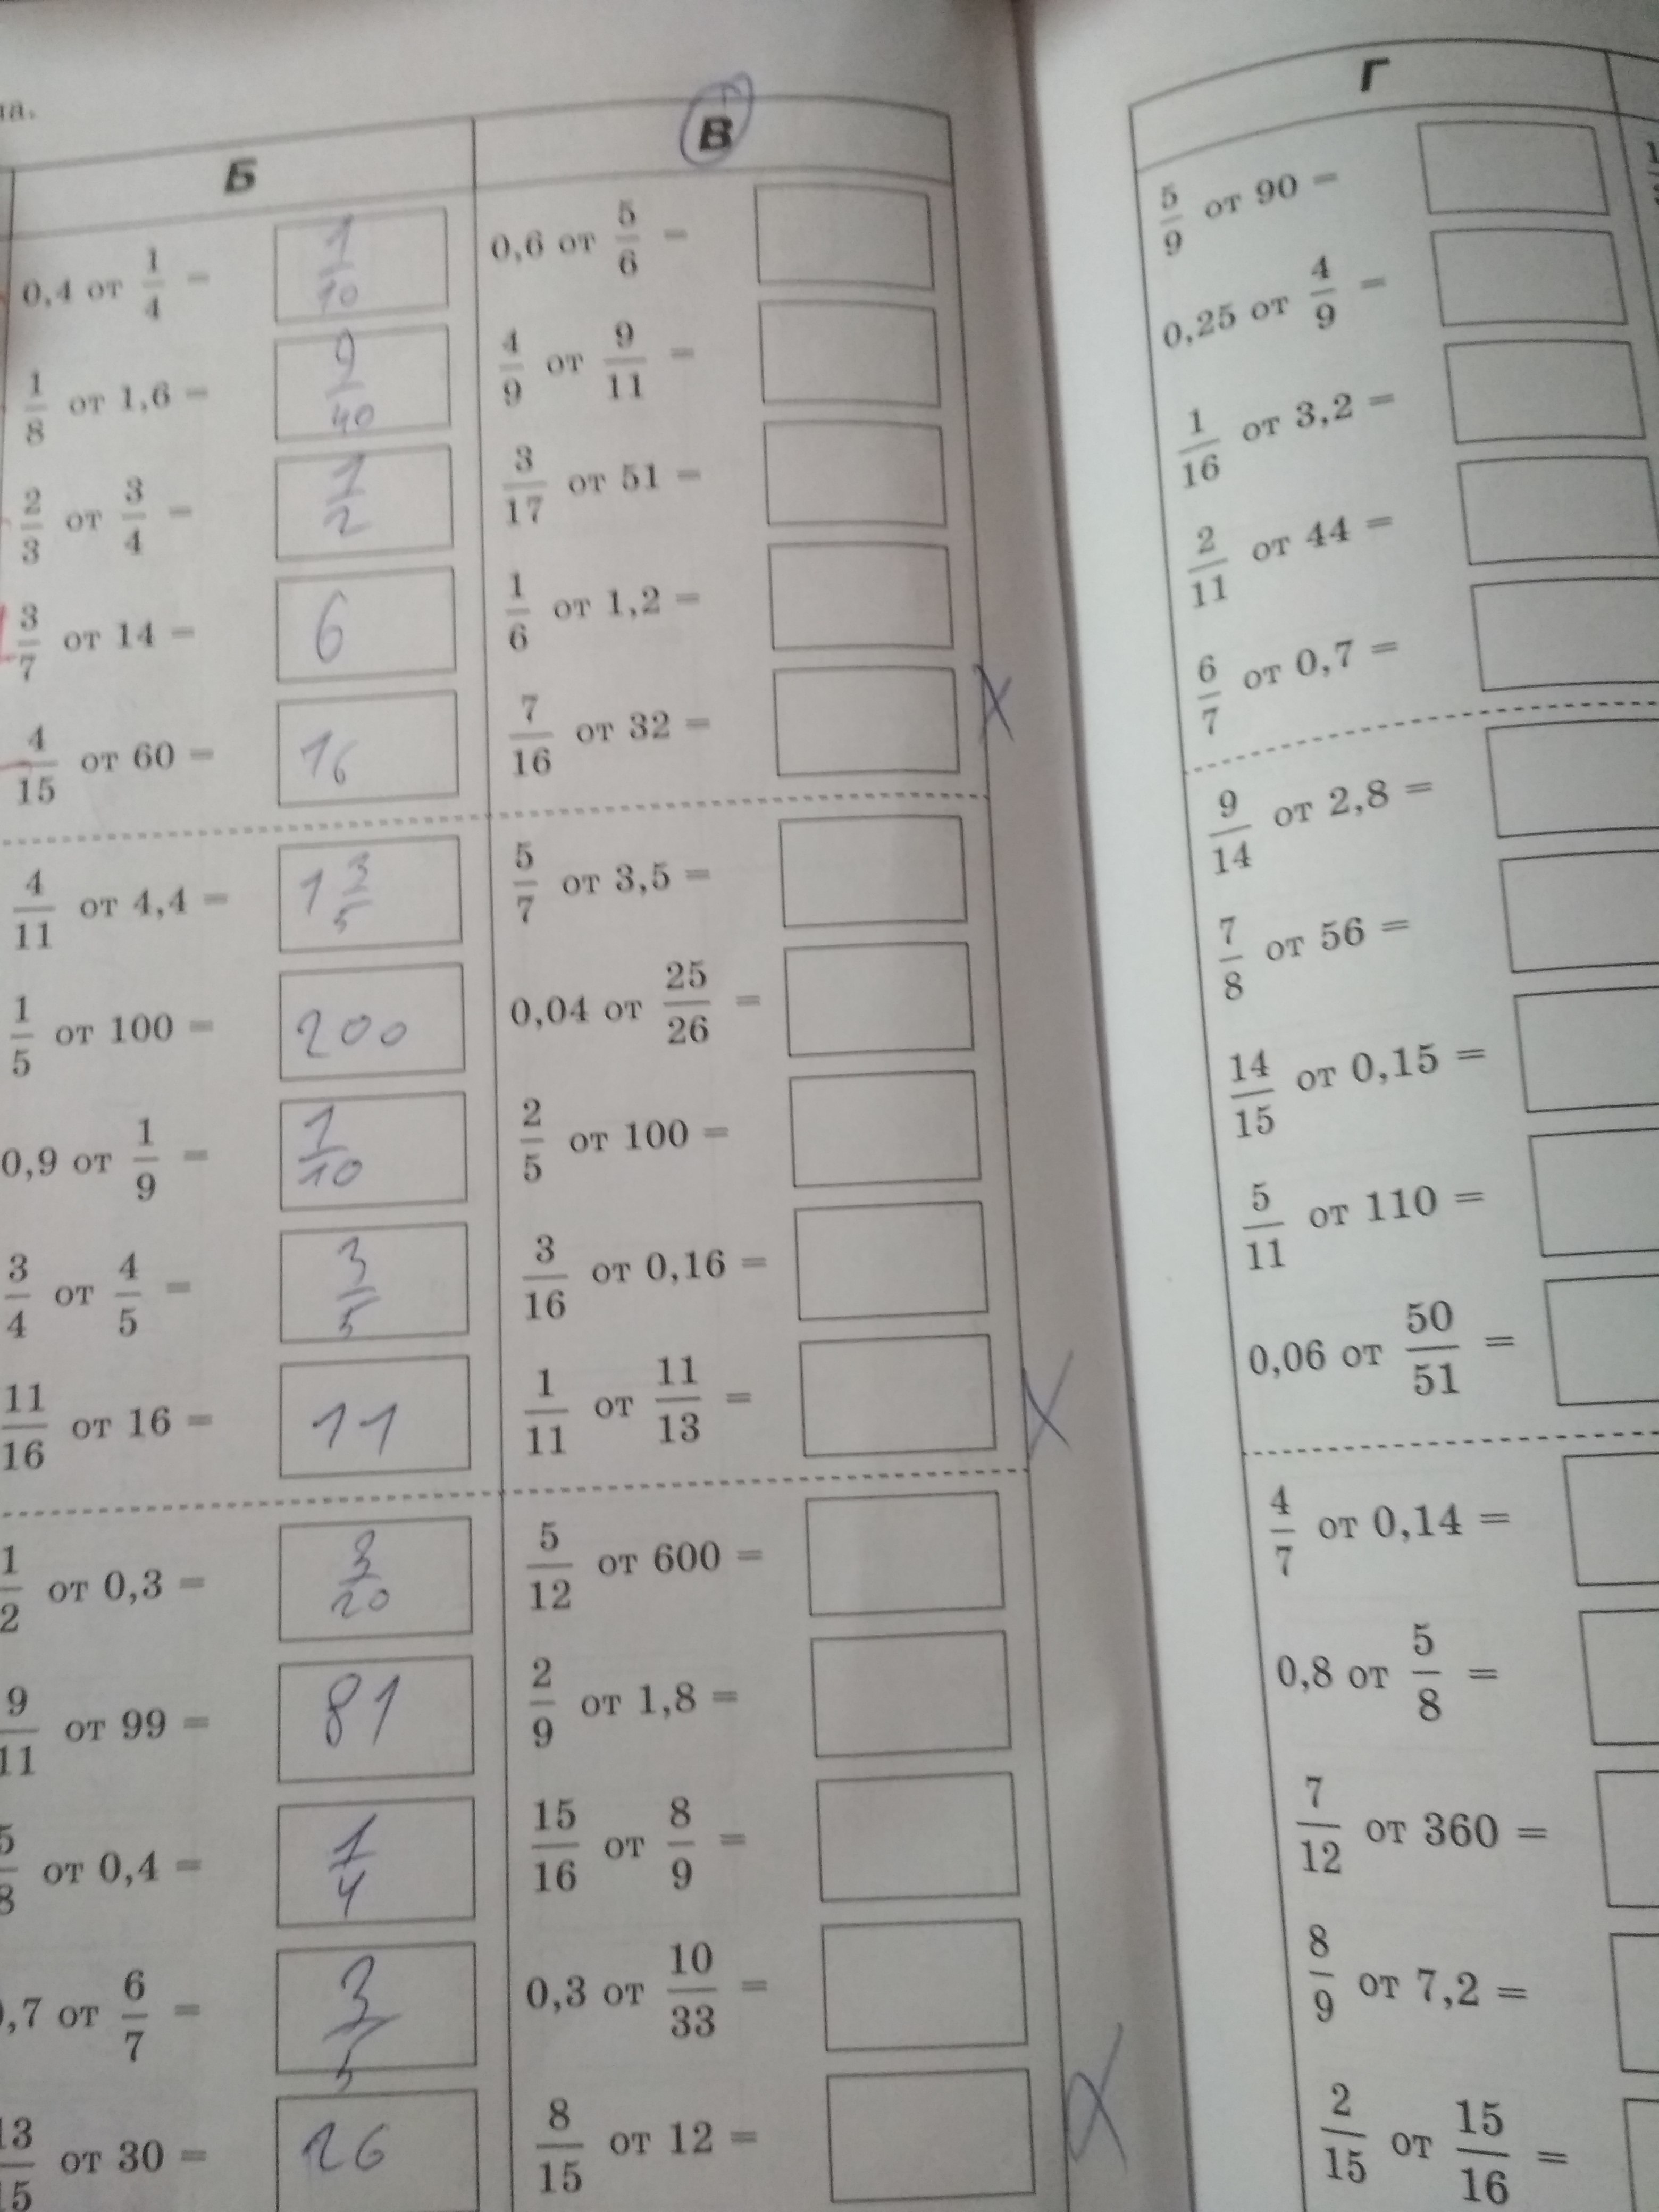 на.
Б
0,4 от 1/4 = 1/10
1/8 от 1,6 = 9/40
2/3 от 3/4 = 1/2
3/7 от 14 = 6
4/15 от 60 = 16
4/11 от 4,4 = 1 3/5
1/5 от 100 = 200
0,9 от 1/9 = 1/10
3/4 от 4/5 = 3/5
11/16 от 16 = 11
1/2 от 0,3 = 3/20
9/11 от 99 = 81
5/8 от 0,4 = 1/4
0,7 от 6/7 = 3/5
13/15 от 30 = 26
В
0,6 от 5/6 =
4/9 от 9/11 =
3/17 от 51 =
1/6 от 1,2 =
7/16 от 32 =
5/7 от 3,5 =
0,04 от 25/26 =
2/5 от 100 =
3/16 от 0,16 =
1/11 от 11/13 =
5/12 от 600 =
2/9 от 1,8 =
15/16 от 8/9 =
0,3 от 10/33 =
8/15 от 12 =
Г
5/9 от 90 =
0,25 от 4/9 =
1/16 от 3,2 =
2/11 от 44 =
6/7 от 0,7 =
9/14 от 2,8 =
7/8 от 56 =
14/15 от 0,15 =
5/11 от 110 =
0,06 от 50/51 =
4/7 от 0,14 =
0,8 от 5/8 =
7/12 от 360 =
8/9 от 7,2 =
2/15 от 15/16 =